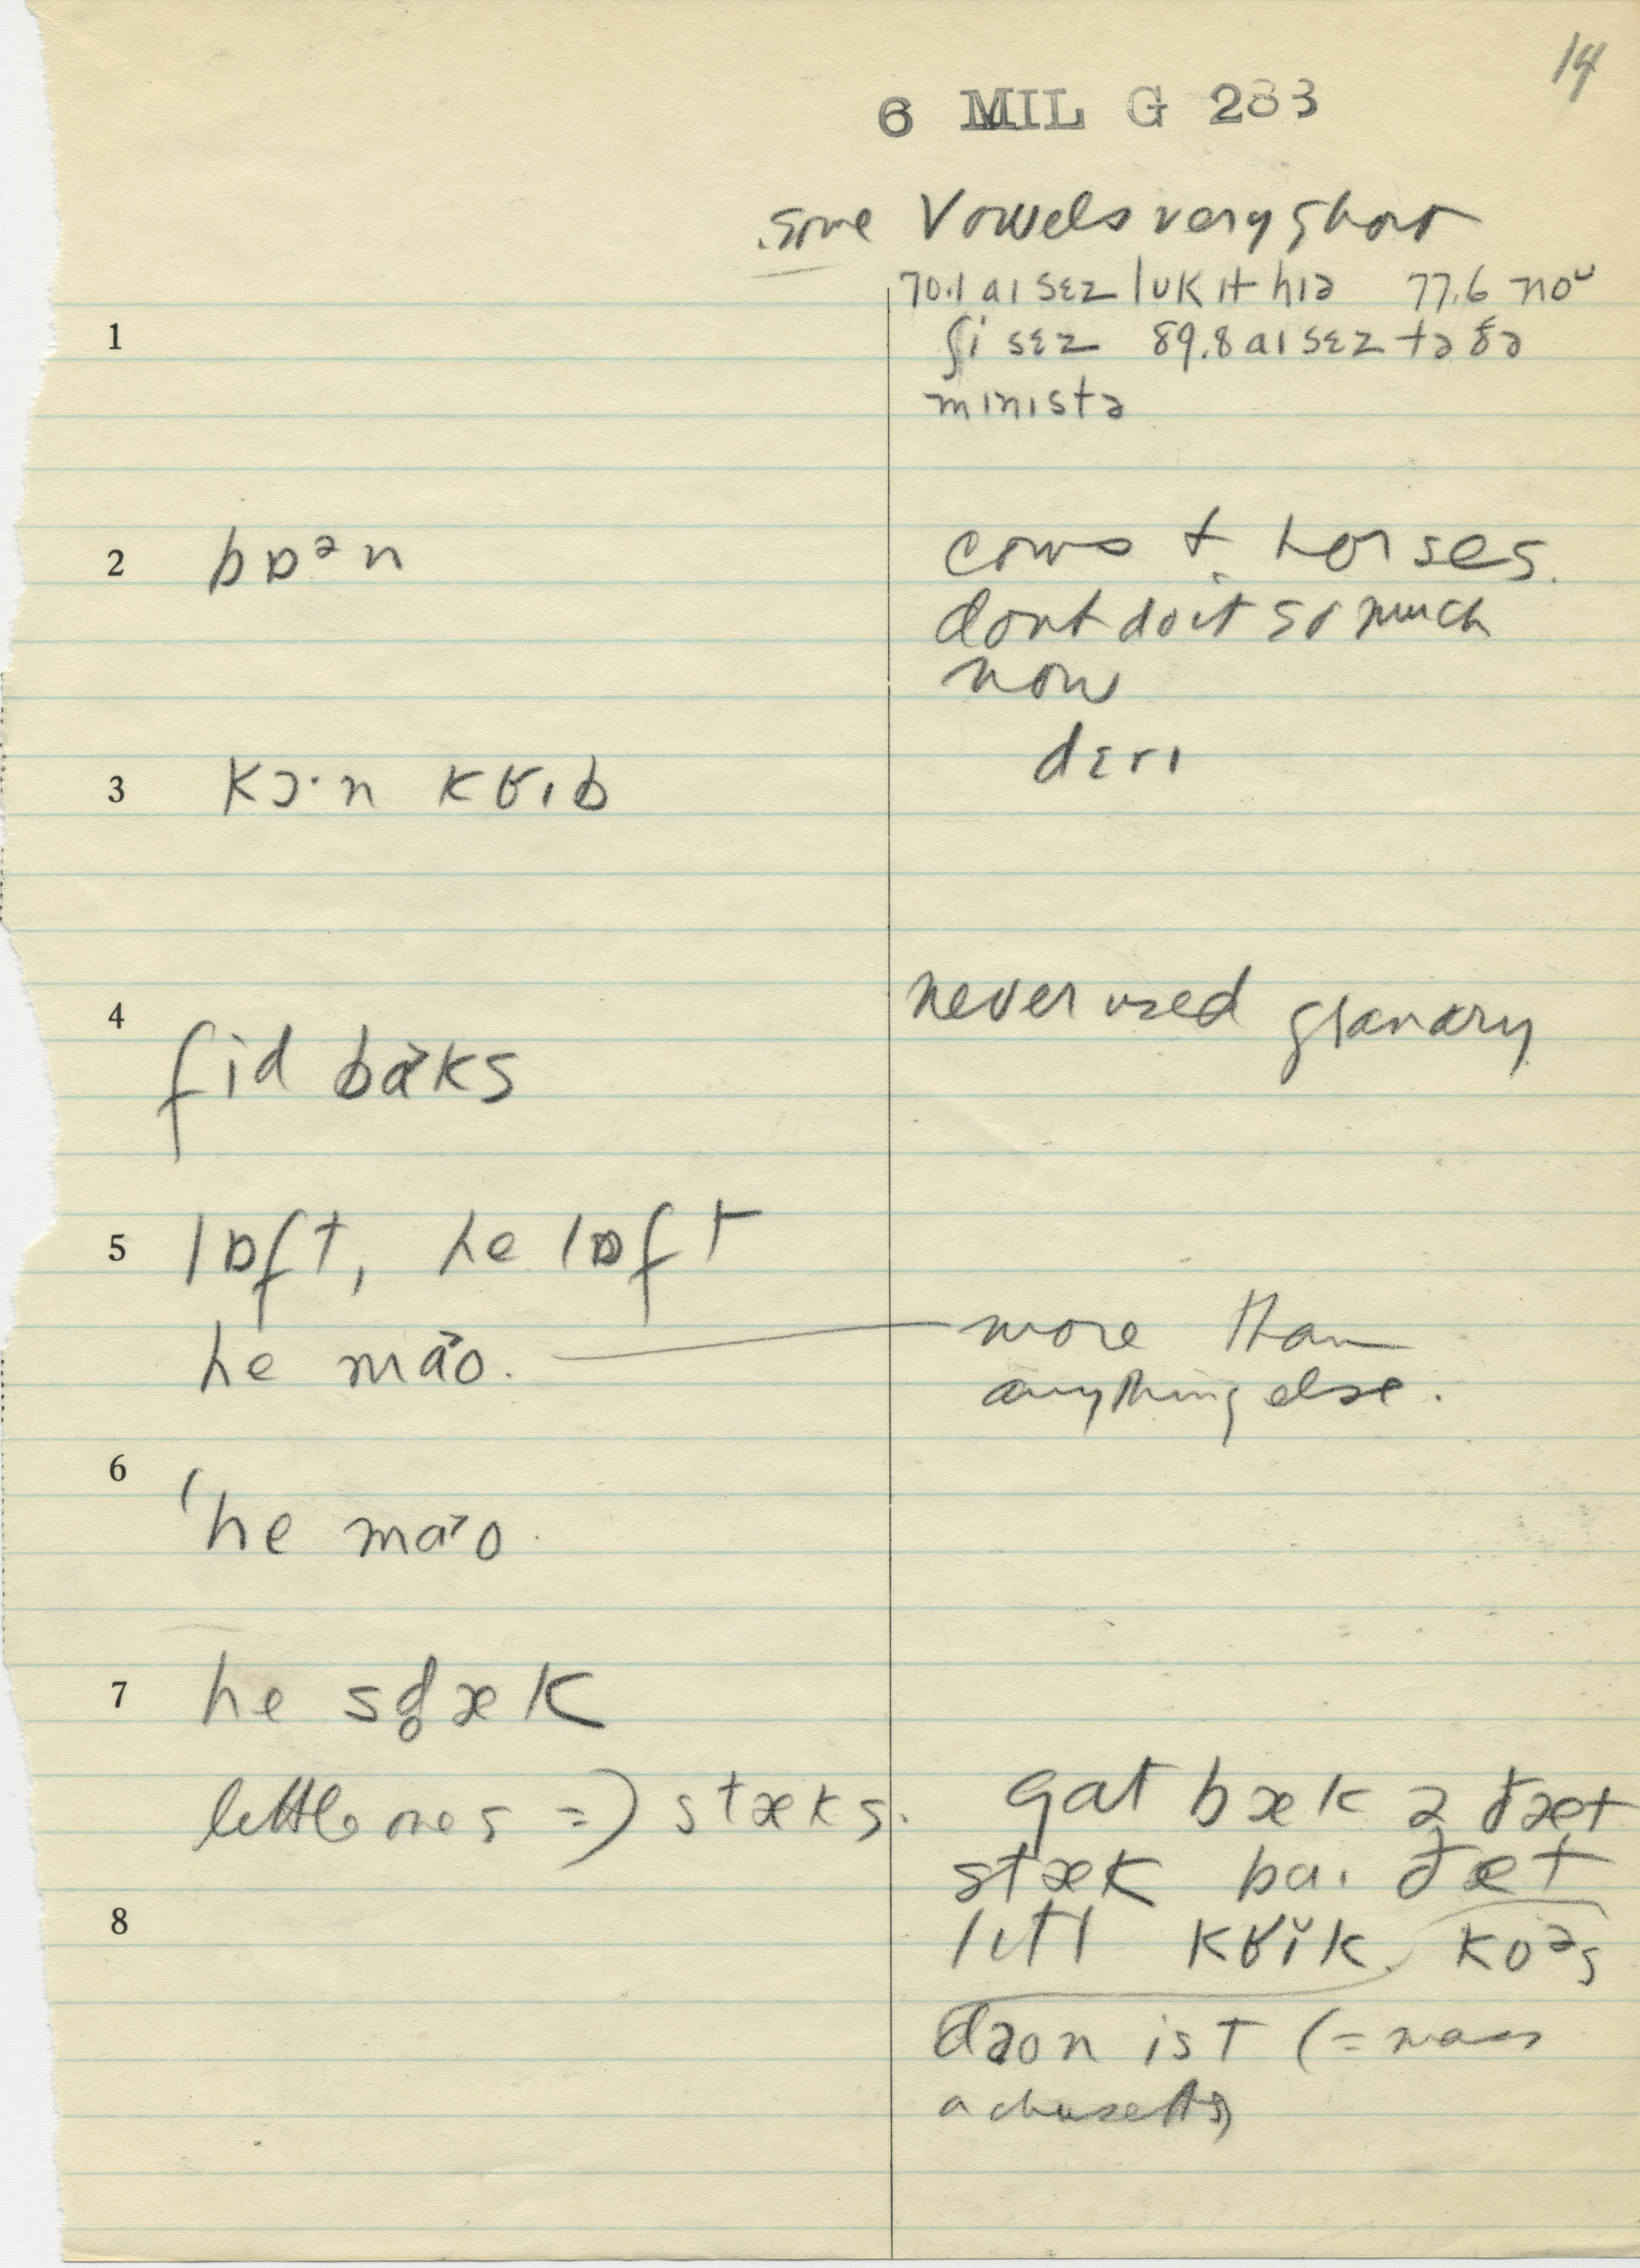 14
6 MIL G 283
some Vowels very short
70.1 aɪ sɛz lʊk ɪt hɪə 77.6 noᵘ
1
ʃi sɛz 89.8 aɪ sɛz tə ðə
mɪnɪstə
2 bɒᵊn cows + horses.
dont do it so much
now
dɛrɪ
3 kɔ·n kʁɪb
4 never used granary
fid bɑ˃ks
5 lɒft, he lɒft
he mɑ˃o. more than
anything else.
6
'he mɑ˃o
7 he sd̥æk
little ones => stæks. gat bæk ə ðæt
stæk ba. ðæt
8 lɪtl kʁĭk. koᵊs
daon ist (= mass
achusetts)